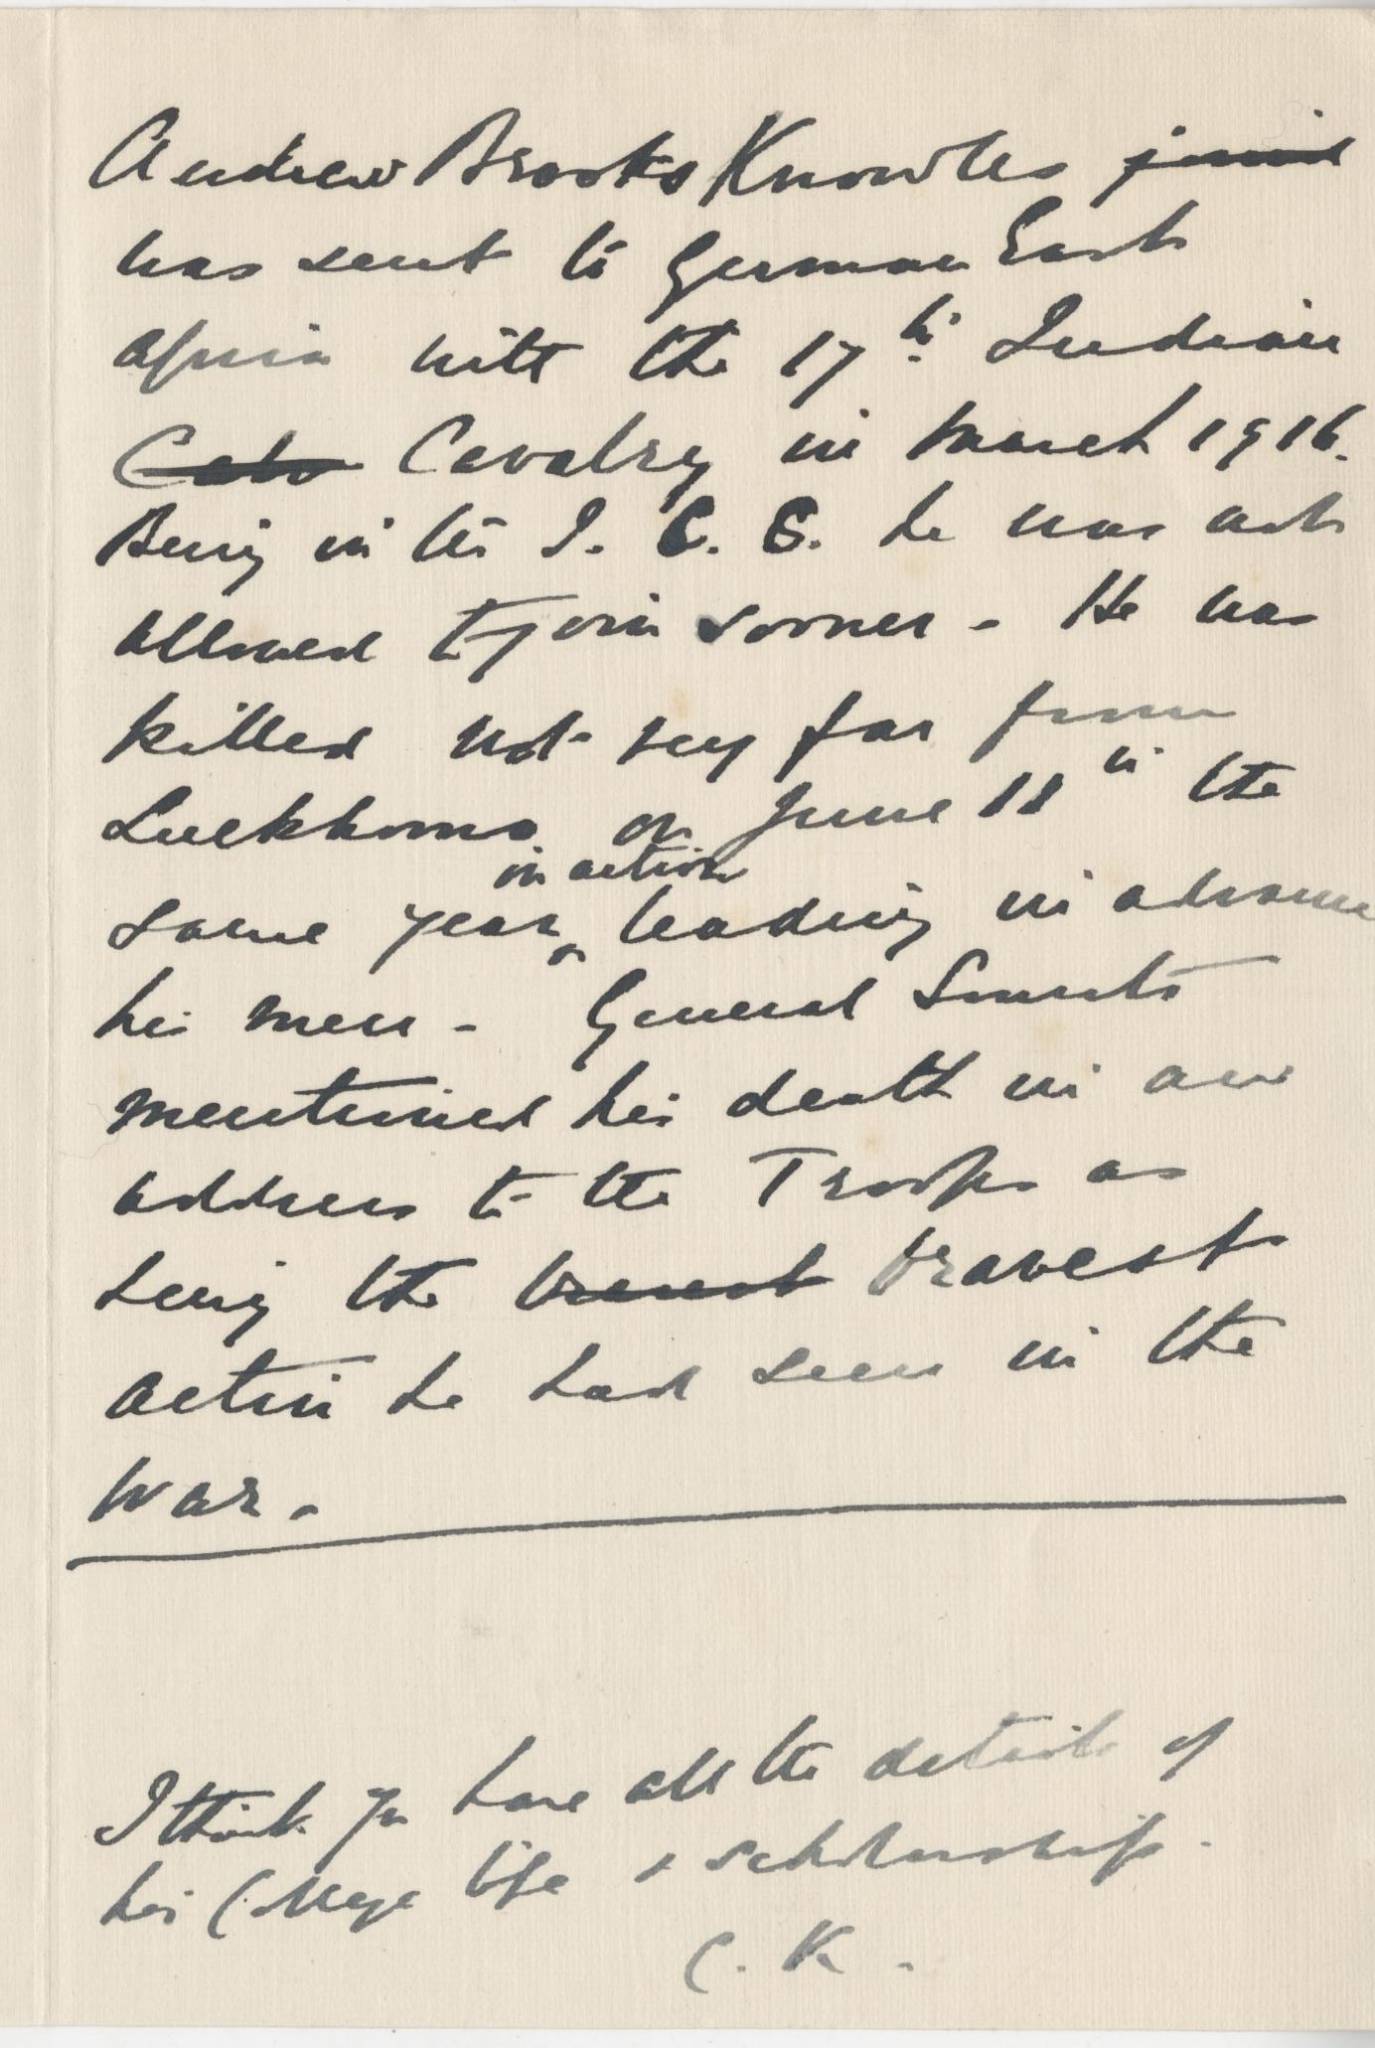 Andrew Brooks Knowles joined
was sent to German East
Africa with the 17th Indian
Calv Cavalry in March 1916.
Being in the I. C. S. he was not
allowed to join sooner - He was
killed not very far from
on June 18th the
in action
same year, leading in advance
his men - General Smuts
mentioned his death in an
address to the Troops as
being the bravest
action he had seen in the
War.
I think you have all the details of
his College life & scholarship.
C. K.